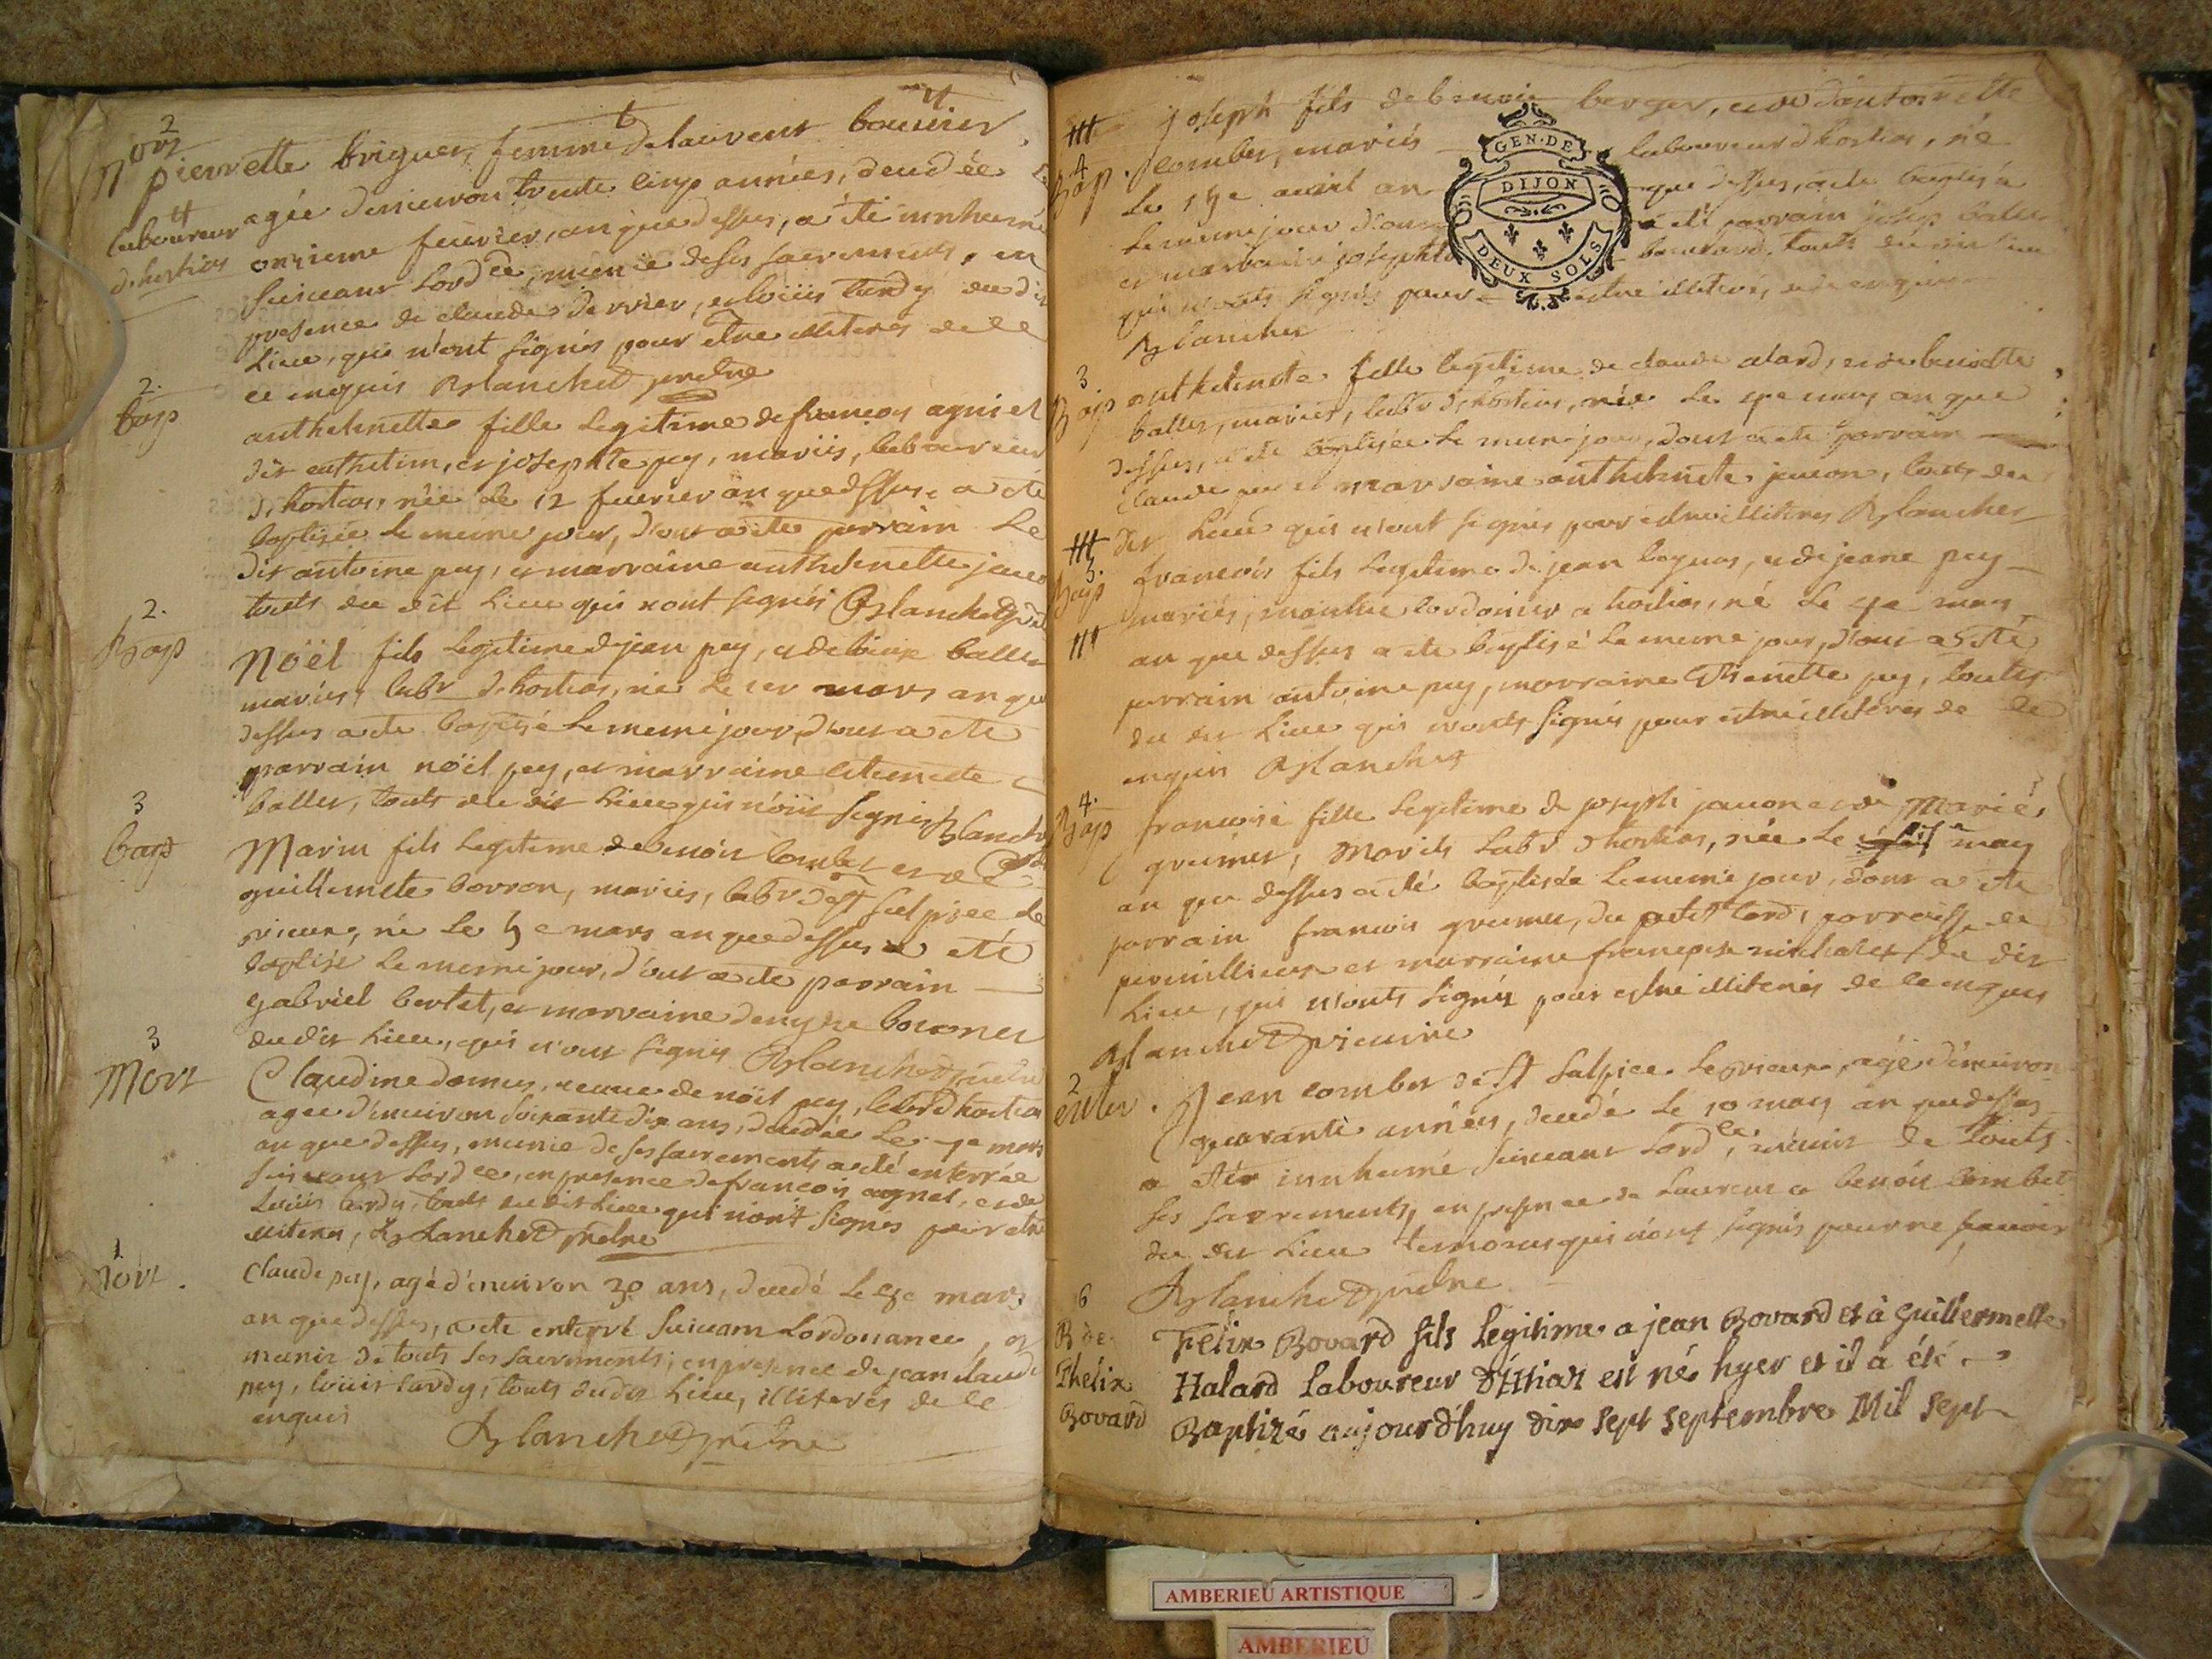 2
Mort
pierrette briguer, femme de laurent bouvier
laboureur
d'hostias
agée d'environ trente cinq années, decedée
onzieme feurier, an que dessus, a été innhumé
suiuant lordce, munie de ses sacrements, en
presence de claude derrier, et loüis tardy du dit
Lieu, qui n'ont signés pour etre illiteres de ce
ce enquis Blanchet prêtre
2.
bap
anthelmette fille Legitime de françois agniel
dit anthelim, et josephte pey, mariés, laboureur
d'hostias, née le 12 feurier an que dessus, a été
baptisée le meme jour, d'ont a été parrain Le
dit antoine pey, et marraine anthelmette jauon
touts du dit Lieu qui n'ont signés Blanchet
2.
Bap
Noël fils Legitime de jean pey, et de
mariés, labr d'hostias, né le 1er mars an que
dessus a été baptisé le meme jour, d'ont a été
parrain noël pey, et marraine
ballet, touts du dit Lieu qui n'ont signés Blanchet
3
bap
Marin fils Legitime de benoit combet et de
guillemete borron, mariés, labr de st sulpice le
vieux, né le 5e mars an que dessus a été
baptisé le meme jour, d'ont a été parrain
gabriel bertet, et marraine denyse
du dit Lieu, qui n'ont signés Blanchet prêtre
3
Mort
Claudine veuue de noël pey, d'hostias
agee d'enuiron soixante dix ans, decedée Le mars
an que dessus, munie de ses sacrements a été enterrée
suiuant Lordce, en presence de françois agniel, et de
Loüis tardy, touts du dit Lieu qui n'ont signés pour etre
illiteres, Blanchet prêtre
1
Mort.
Claude pey, agé d'enuiron 30 ans, decedé Le mars
an que dessus, a été enterré suiuant Lordonance, et
munis de touts ses sacrments, en presence de jean claude
pey, loüis tardy, touts du dit Lieu, illiterés de ce
enquis
Blanchet prêtre
joseph fils de benoit berger, et de d'antoinette
4
Bap.
combet, mariés laboureur d'hostias, né
Le avril an que dessus, a été baptisé
Le meme jour d'ont a été parrain joseph ballet
et marraine josephte touts du dit Lieu
qui n'onts signés pour estre illiteres, de ce enquis
Blanchet
GEN. DE
DIJON
DEUX SOLS
3
Bap
anthelmete fille legitime de claude alard, et de benoitte
ballet, mariés, labr d'hostias, née Le may an que
dessus, a été baptisée Le meme jour, dont a été parrain
claude pey et marraine anthelmete jauon, touts du
dit Lieu qui n'ont signés pour estre illiteres Blanchet
5.
Bap
francois fils Legitime de jean et de jeane pey
mariés, maitre cordonier a hostias, né Le may
an que dessus a été baptisé Le meme jour, d'ont a été
parrain antoine pey, marraine pey, touts
du dit Lieu qui n'onts signés pour estre illiteres de ce
enquis Blanchet
4.
Bap
francoise fille Legitime de joseph jauon et de Marie
grumet, Mariés Labr d'hostias, née Le may
an que dessus a été baptisée Le meme jour, dont a été
parrain francois grumet, du petit parroisse de
et marraine françoise du dit
Lieu, qui n'onts signés pour estre illiterés de ce enquis
Blanchet
2
enter.
Jean combet de st sulpice Le vieux, agé d'enuiron
quarante années, decedé Le 10 may an que dessus
a été innhumé suiuant Lordce, munis de touts
ses sacrements, en presence de Laurent et benoit combet
du dit Lieu temoins qui n'ont signés pour ne sauoir
Blanchet prêtre
6
B de
Phelix
Bovard
Felix Bovard fils Legitime a jean Bovard et à Guillermette
Halard Laboureur d'Hthiaz est né hyer et il a été
Baptizé aujourd'huy dix sept septembre Mil sept
AMBERIEU ARTISTIQUE
AMBERIEU